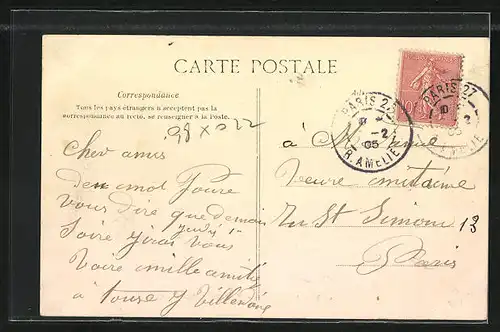 CARTE POSTALE
Correspondance
Tous les pays étrangers n'acceptent pas la
correspondance au recto, se renseigner à la Poste.
98 x 022
Cher amis
deu mot Poure
Vous dire que demain
jeudi
Soire j'irai vous
Voire mille amitiés
à touse
à M.
Veuve
Rue St Simon 13
Paris
PARIS 27
-2
05
R. AMELIE
PARIS 27